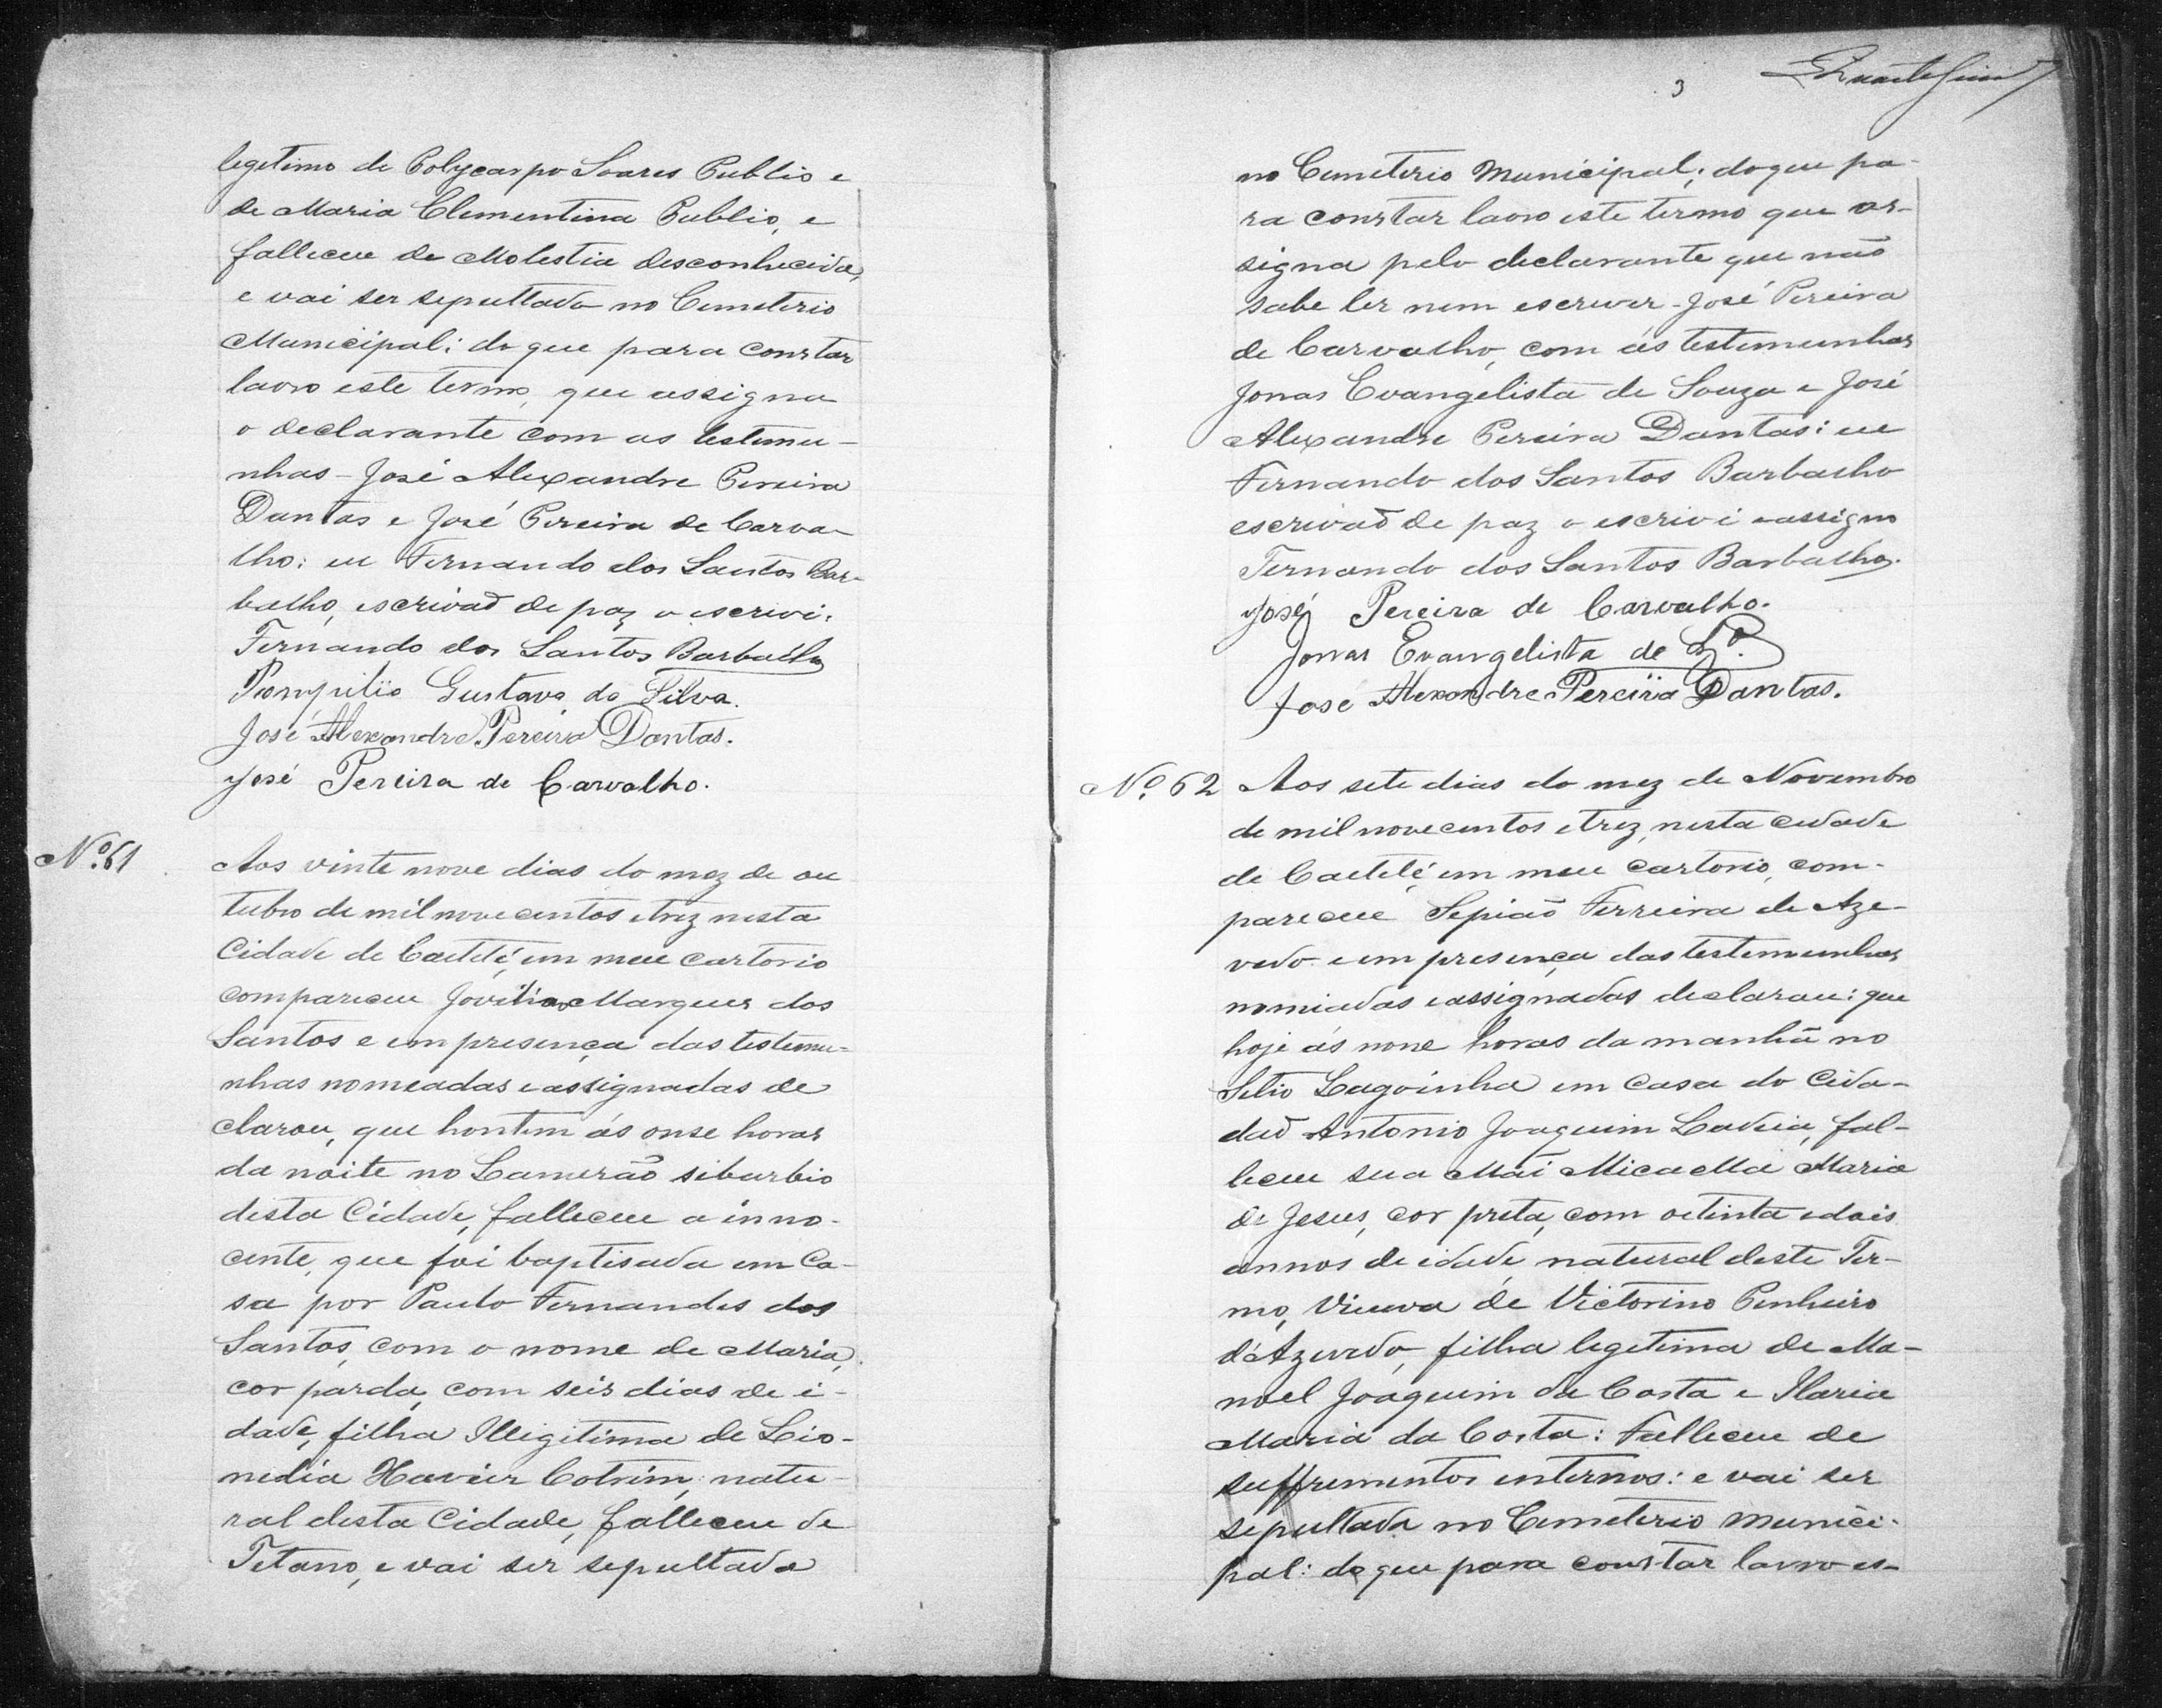 legitimo de Polycarpo Soares Publio e
de Maria Clementina Publio, e
falleceu de Molestia desconhecida,
e vai ser sepultado no Cemeterio
Municipal: do que para constar
lavro este termo, que assigna
o declarante com as testemu-
nhas - José Alexandre Pereira
Dantas e José Pereira de Carva-
lho: eu Fernando dos Santos Bar-
balho, escrivaõ de paz o escrivi.
Fernando dos Santos Barbalho
Pompilio Gustavo da Silva.
José Alexandre Pereira Dantas.
José Pereira de Carvalho.
Nº 61
Aos vinte nove dias do mez de ou
tubro de mil nove centos e trez nesta
Cidade de Caetité, em meu cartorio
compareceu Marques dos
Santos e em presença das testemu-
nhas nomeadas e assignadas de
clarou, que hontem ás onse horas
da noite no Lamerão siburbio
desta Cidade, falleceu a inno-
cente, que foi baptisada em Ca-
sa por Paulo Fernandes dos
Santos, com o nome de Maria,
cor parda, com seis dias de i-
dade, filha Illigitima de Leo-
nedia Xavier Cotrim, natu-
ral desta Cidade, falleceu de
Tetano, e vai ser sepultada
3
no Cemeterio Municipal; do que pa-
ra constar lavro este termo que as-
signa pelo declarante que não
sabe ler nem escrever - José Pereira
de Carvalho, com as testemunhas
Jonas Evangelista de Souza e José
Alexandre Pereira Dantas: eu
Fernando dos Santos Barbalho
escrivaõ de paz o escrivi e assigno
Fernando dos Santos Barbalho.
José Pereira de Carvalho.
Jonas Evangelista de Sza.
José Alexandre Pereira Dantas.
Nº 62 Aos sete dias do mez de Novembro
de mil novecentos e trez, nesta cidade
de Caetité, em meu cartorio, com-
pareceu Sepião Ferreira de Aze-
vedo e em presença das testemunhas
nomiadas e assignadas declarou: que
hoje ás nove horas da manhã no
Setio Lagoinha em casa do Cida-
daõ Antonio Joaquim Ladeia, fal-
leceu sua Mãi Micaella Maria
de Jesus, cor preta, com oitinta e dois
annos de idade natural deste Ter-
mo, Viuva de Victorino Pinheiro
d'Azevedo, filha legetima de Ma-
noel Joaquim da Costa e Ilaria
Maria da Costa: Falleceu de
suffrimentos internos: e vai ser
sepultada no Cemeterio Munici-
pal: do que para constar lavro es-